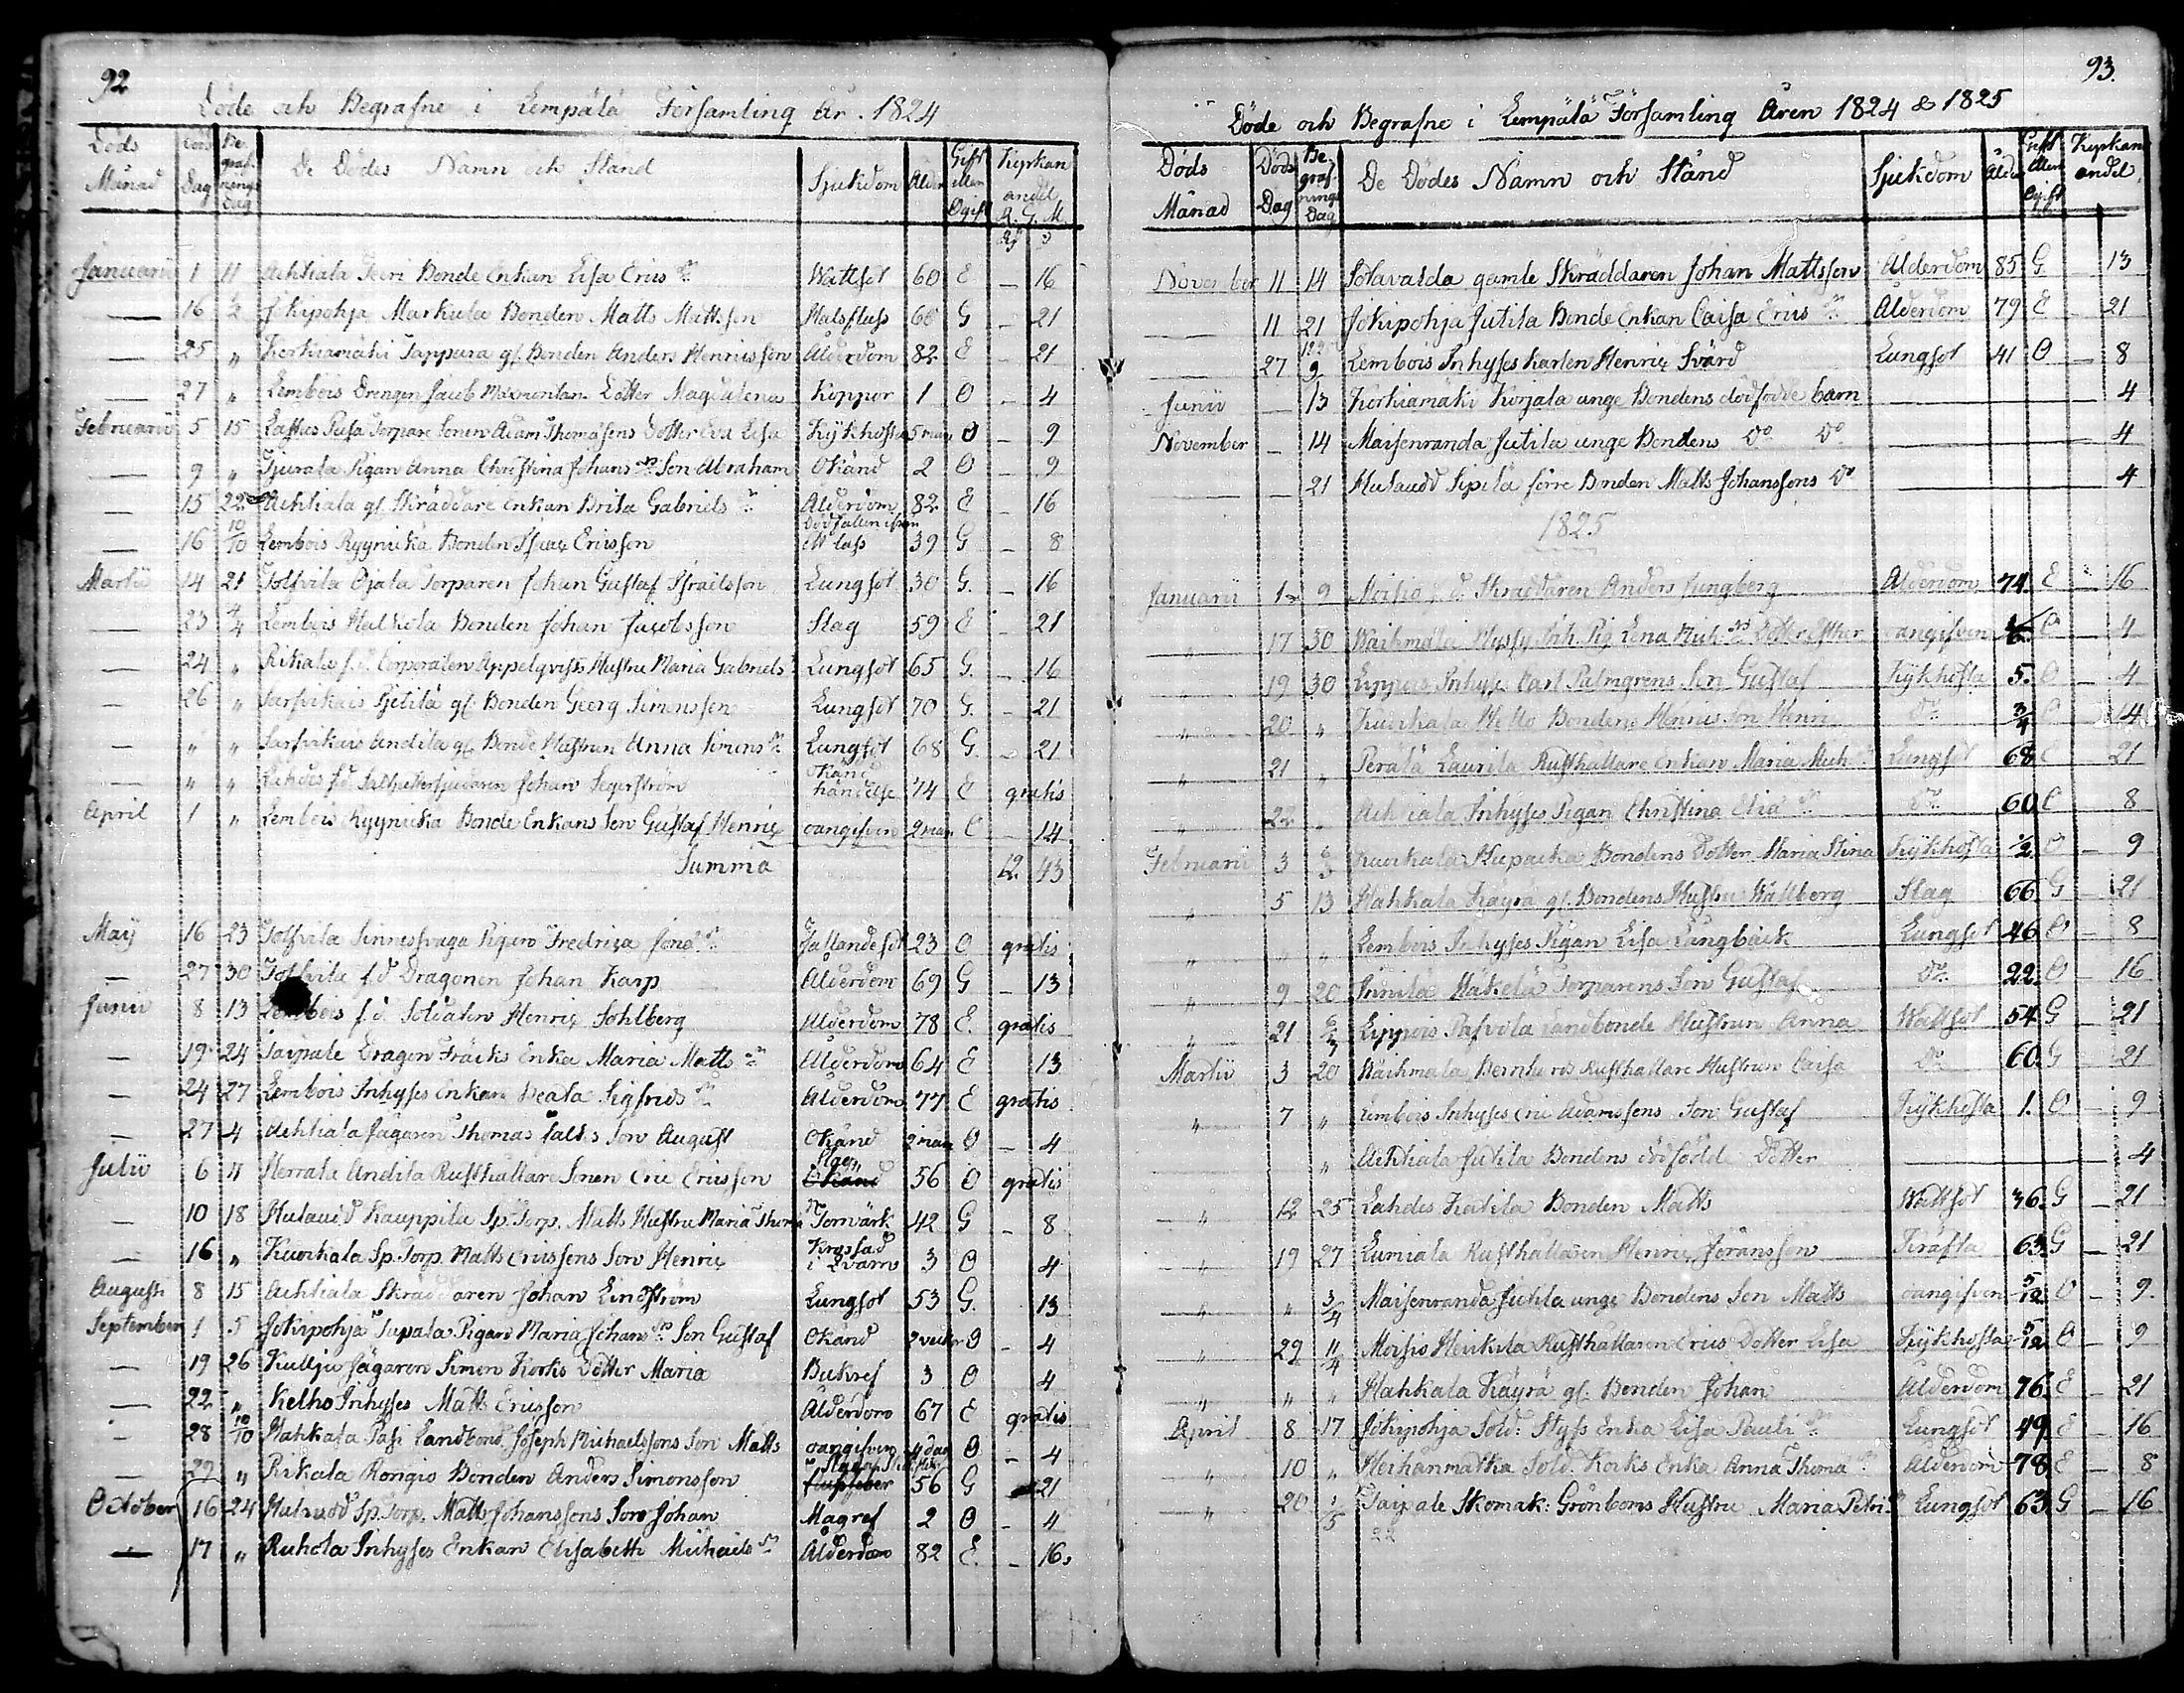 92
Döde och Begrafne i Lempälä Församling År. 1824
Döds Månad | Döds Dag | Begrafnings Dag | De Dödes Namn och Stånd | Sjukdom | Ålder | Gift eller Ogift | Kyrkans andel R. G. M.
Januarii 1 11 Ahtiala Bonde Enkan Lisa Erics dr Wattsot 60 E – 16
— 16 1/2 Jokipohja Markula Bonden Matts Mattsson Halsfluss 66 G – 21
— 25 „ Korkiamäki Tappura gl. Bonden Anders Henricsson Ålderdom 82 E – 21
— 27 „ Lembois Drengen Jacob Dotter Magdalena Koppor 1 O – 4
Februarii 5 15 Lastus Torpare Sonen Adam Thomæsons Dotter Eva Lisa Kykhosta 5 mån O – 9
— 9 „ Pigan Anna Christina Johans dr Son Abraham Okänd 2 O – 9
— 15 22 Ahtiala gl. Skräddare Enkan Brita Gabriels dr Ålderdom 82 E – 16
— 16 10/10 Lembois Ryynikä Bonden Isaac Ericsson Död fallen ifrån ett lass 39 G – 8
Martii 14 21 Tolfvila Ojala Torparen Johan Gustaf Israelsson Lungsot 30 G. – 16
— 23 4/4 Lembois Halkola Bonden Johan Jacobsson Slag 59 E – 21
— 24 „ Rikala f.d. Corporalen Appelqvists Hustru Maria Gabriels dr Lungsot 65 G. – 16
— 26 „ Sarfvikais Pjetilä gl. Bonden Georg Simonsson Lungsot 70 G. – 21
— „ „ Sarfvikais Andila gl. Bonde Hustrun Anna Simons dr Lungsot 68 G. – 21
— „ „ Lahdes f.d. Johan Segerström Okänd händelse 74 E gratis
April 1 „ Lembois Ryynikä Bonde Enkans Son Gustaf Henric oangifven 2 mån O – 14
Summa 12 43
Maij 16 23 Tolfvila Pigan Fredrica Jons dr Fallandesot 23 O gratis
— 27 30 Tolfvila f.d. Dragonen Johan Karp Ålderdom 69 G – 13
Junii 8 13 Lembois f.d. Soldaten Henric Sohlberg Ålderdom 78 E. gratis
— 19 24 Taipale Dragon Fräcks Enka Maria Matts dr Ålderdom 64 E 13
— 24 27 Lembois Inhyses Enkan Beata Sigfrids dr Ålderdom 77 E gratis
— 27 4 Ahtiala Jägaren Thomas Falks Son August Okänd 2 mån O – 4
Julii 6 11 Herrala Andila Rusthållare Sonen Eric Ericsson Slag Okänd 56 O gratis
— 10 18 Hulaud Kauppila Sp. Torp. Matts Hustru Maria Thoma Tornvärk 42 G – 8
— 16 „ Kuokala Sp. Torp. Matts Ericssons Son Henric Krossad i Qvarn 3 O 4
Augusti 8 15 Ahtiala Skräddaren Johan Lindström Lungsot 53 G. 13
September 1 5 Jokipohja Tupala Pigan Maria Johans dr Son Gustaf Okänd 2 veckor O – 4
— 19 26 Kulju Jägaren Simon Korks Dotter Maria Bukref 3 O 4
— 22 „ Kelho Inhyses Matts Ericsson Ålderdom 67 E gratis
— 28 10/10 Hahkala Pasi Landbond. Joseph Michaelssons Son Matts oangifven 4 dag O – 4
— 29 „ Rikala Rongio Bonden Anders Simonsson 56 G 21
October 16 24 Hulaud Sp. Torp. Matts Johanssons Son Johan Magref 2 O – 4
— 17 „ Ruhola Inhyses Enkan Elisabeth Michaels dr Ålderdom 82 E. – 16.
93.
Döde och Begrafne i Lempälä Församling Åren 1824 & 1825
Döds Månad | Döds Dag | Begrafnings Dag | De Dödes Namn och Stånd | Sjukdom | Ålder | Gift eller Ogift | Kyrkans andel
November 11 14 Sotavalda gamle Skräddaren Johan Mattsson Ålderdom 85 G 13
— 11 21 Jokipohja Jutila Bonde Enkan Caisa Erics dr Ålderdom 79 E 21
— 27 12/9 Lembois Inhyses Karlen Henric Svärd Lungsot 41 O – 8
Junii — 13 Korkiamäki Korjala unge Bondens dödfödde barn 4
November – 14 Maisenranda Jutila unge Bondens Do Do 4
— – 21 Hulaud Sipilä förre Bonden Matts Johanssons Do 4
1825
Januarii 1 9 Moisio f.d. Skräddaren Anders Ljungberg Ålderdom 74. E – 16
„ 17 30 Inh. Pig. Lena Mich. dr Dotter Esther oangifven O 4
„ 19 30 Lippois Inhys. Carl Palmgrens Son Gustaf Kykhosta 5. O – 4
„ 20 „ Kuokala Bonden Henrics Son Henric Do 3/4 O 14
„ 21 „ Perälä Laurila Rusthållare Enkan Maria Mich. dr Lungsot 68 E 21
„ 22 „ Ahtiala Inhyses Pigan Christina Elia dr Do 60 O 8
Februarii 3 6/3 Kuokala Bondens Dotter Maria Stina Kykhosta 1/2 O – 9
„ 5 13 Hahkala Käyrä gl. Bondens Hustru Wallberg Slag 66 G – 21
„ „ „ Lembois Inhyses Pigan Lisa Långbäck Lungsot 46 O – 8
„ 9 20 Innilä Mäkelä Torparens Son Gustaf Do 22 O – 16
„ 21 6/3 Lippois Pafvola Landbonde Hustrun Anna Wattsot 54 G – 21
Martii 3 20 Wäihmälä Bernhards Rusthållare Hustrun Caisa Do 60 G – 21
„ 7 „ Lembois Inhyses Eric Adamssons Son Gustaf Kykhosta 1. O – 9
„ Ahtiala Jutila Bondens dödfödde Dotter 4
„ 12 25 Lahdes Katila Bonden Matts Wattsot 36. G – 21
„ 19 27 Lumiala Rusthållaren Henric Göransson Kräfta 63 G – 21
„ „ 3/4 Maisenranda Jutila unge Bondens Son Matts oangifven 5/12 O – 9
„ 29 11/4 Moisio Heikila Rusthållaren Erics Dotter Lisa Kykhosta 5/12 O – 9
„ „ „ Hahkala Käyrä gl. Bonden Johan Ålderdom 76. E – 21
April 8 17 Jokipohja Sold: Styfs Enka Lisa Pauli dr Lungsot 49 E – 16
„ 10 „ Herhanmatka Sold. Korks Enka Anna Thoma dr Ålderdom 78 E – 8
„ 20 1/5 Taipale Skomak: Grönboms Hustru Maria Petri dr Lungsot 63. G – 16
22